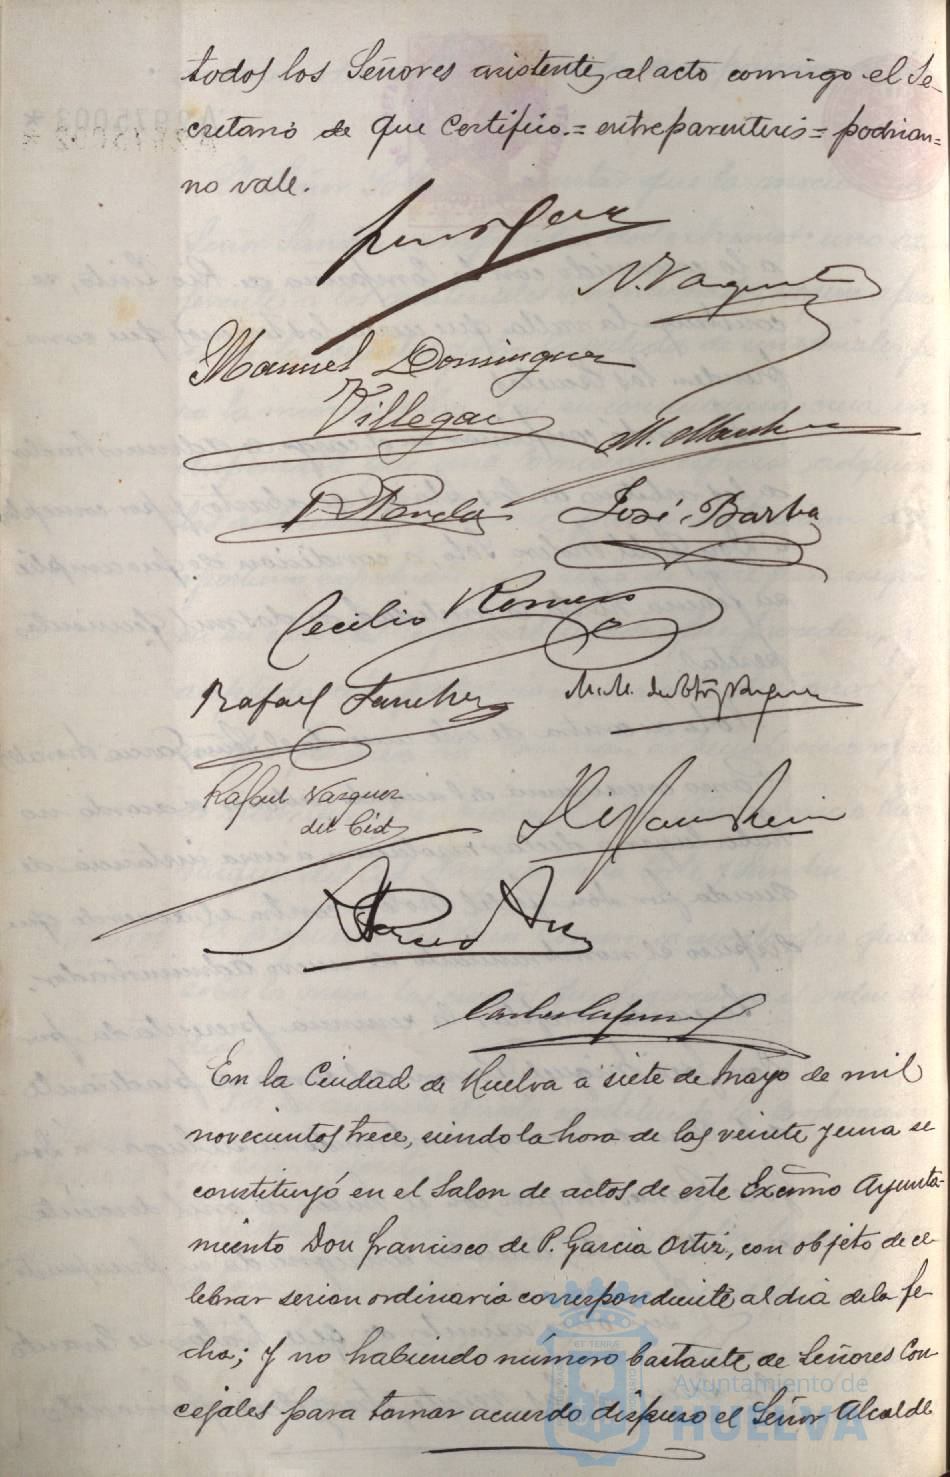 todos los Señores asistentes, al acto conmigo el Se-
cretario de que Certifico.= entreparentesis= podrian=
no vale.
N. Vazquez
Manuel Dominguez
Villegas
José Barba
Cecilio Romero
Rafael Sanchez
Rafael Vazquez
del Cid
En la Ciudad de Huelva a siete de Mayo de mil
novecientos trece, siendo la hora de las veinte y una se
constituyó en el Salon de actos de este Excmo Ayunta-
miento Don Francisco de P. Garcia Ortiz, con objeto de ce-
lebrar sesion ordinaria correspondiente al dia de la fe-
cha; y no habiendo número bastante de Señores Con-
cejales para tomar acuerdo dispuso el Señor Alcalde
Ayuntamiento de
HUELVA